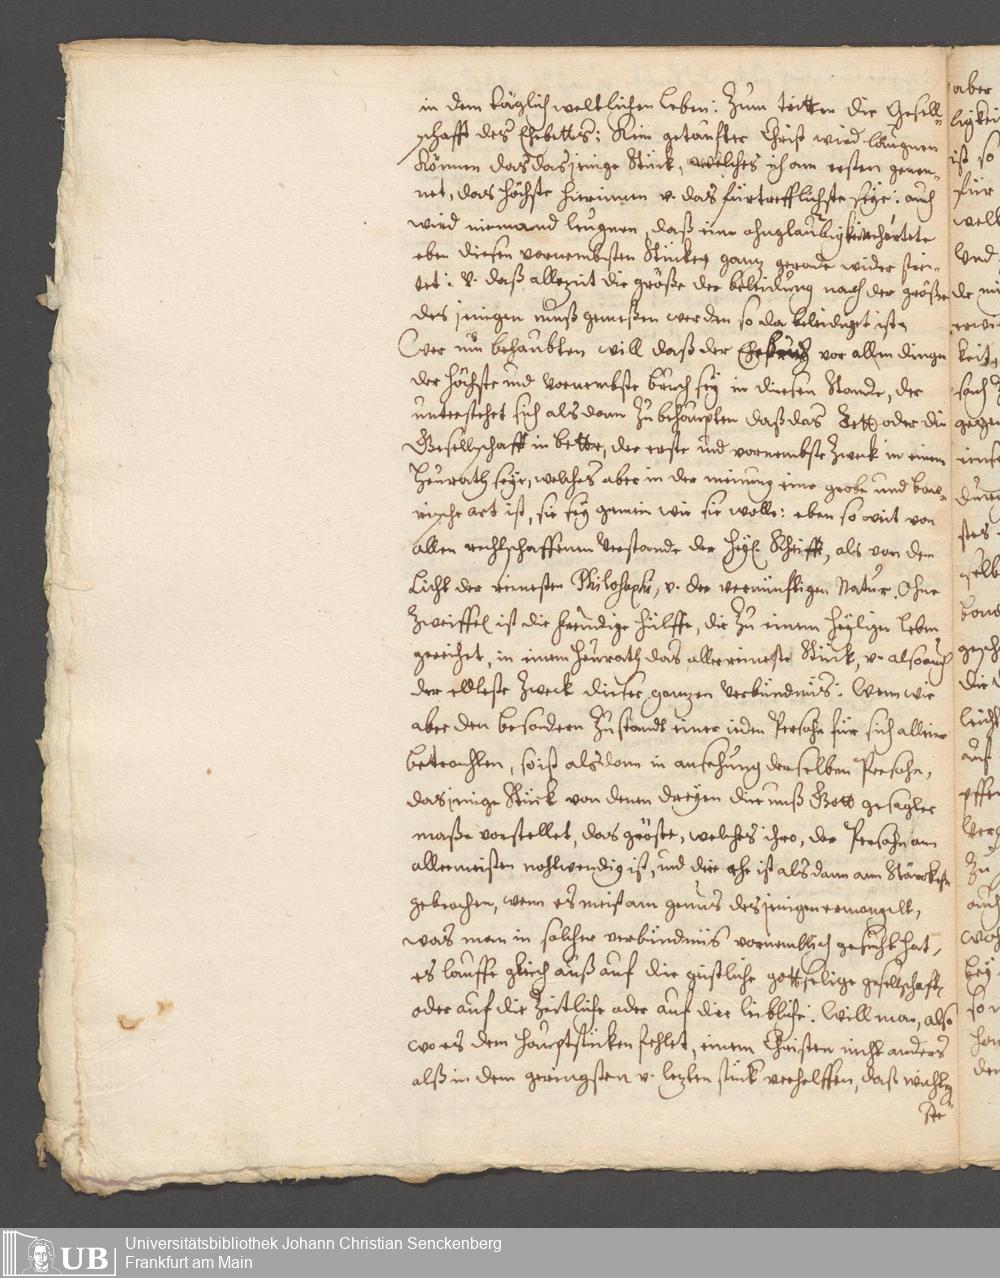 in dem täglich weltlichen leben: Zum tritten die Gesell-
schafft des Ehebettes; Kein getauffter Christ wird läugnen
können das dasjenige Stück, welches ich am ersten genen-
net, das höchste hierinnen v. das fürtrefflichste seye: auch
wird niemand leugnen, daß eine ohnglaubige
eben diesen vornembsten Stücken ganz gerade wider strei-
tet: v. daß allezeit die größe der beleidung nach der größe
des jenigen muß gemeßen werden so da beleidiget ist.
Wer nun behaubten will daß der Ehebruch vor allen dingen
der höchste und vornembste bruch sey in diesen Stande, der
unterstehet sich alsdann zu behaupten daß das Bett oder die
Gesellschafft in bette, der erste und vornembste Zweck in einem
Heurath seye, welches aber in der meinung eine grobe und baw-
rische art ist, sie sey gemein wie sie wolle: eben so weit von
allen rechtschaffenen Verstande der Heyl. Schrifft, als von dem
Licht der reinesten Philosophi, v. der vernünfftigen Natur. Ohne
Zweiffel ist die freudige hülffe, die zu einem heyligen leben
gereichet, in einem Heurath das allerreineste Stück, v. also auch
der edleste Zweck dieser ganzen Verbündnüs: Wenn wir
aber den besondern Zustandt einer ieden Persohn für sich alleine
betrachten, so ist alsdann in ansehung derselben Persohn,
dasjenige Stück von denen dreyen die unß Gott gesagter
maßen vorstellet, das gröste, welches ihro, der Persohn am
allermeisten nothwendig ist, und die ehe ist alsdann am Stärckesten
gebrochen, wenn es meist am genus desjenigen ermangelt,
was man in solcher verbündnüs vornemblich gesucht hat,
es lauffe gleich auß auf die geistliche gottselige gesellschafft
oder auf die Zeitliche oder auf die leibliche. Will man, also
wo es dem Hauptstücken fehlet, einem Christen nicht anders
alß in dem geringsten v. lezten stück verhelffen, daß wichtig-
ste
aber
ligkeit
ist so
für
welt
Und
de
keit,
sach
gegen
stes
selb
die
leicht
auf
Zu
auch
bey
so
der
UB
Universitätsbibliothek Johann Christian Senckenberg
Frankfurt am Main